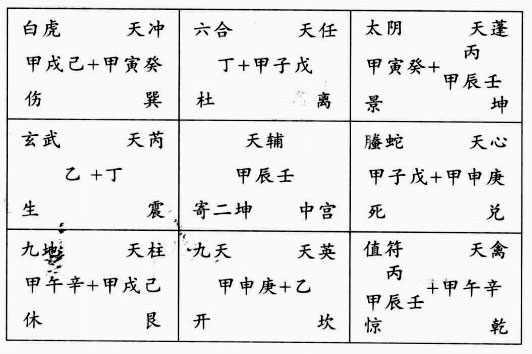 白虎 天冲
甲戌己+甲寅癸
伤 巽
六合 天任
丁+甲子戊
杜 离
太阴 天蓬
丙
甲寅癸+
甲辰壬
景 坤
玄武 天芮
乙+丁
生 震
天辅
甲辰壬
寄二坤 中宫
螣蛇 天心
甲子戊+甲申庚
死 兑
九地 天柱
甲午辛+甲戌己
休 艮
九天 天英
甲申庚+乙
开 坎
值符 天禽
丙
+甲午辛
甲辰壬
惊 乾